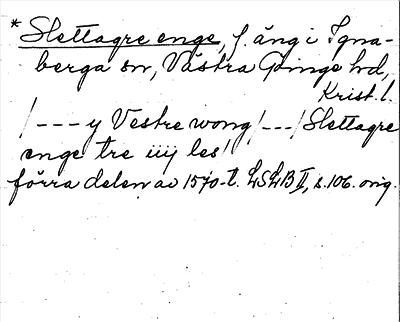 * Slettagre enge, f. äng i Igna-
berga sn, Västra Göinge hd,
Krist. l.
/---y Vestre wong/---/Slettagre
enge tre iiij les/
förra delen av 1570-t. LSLB II, s. 106. orig.